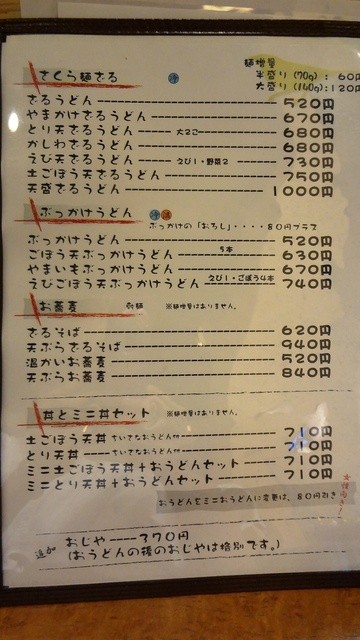 さくら麺ざる 冷
麺増量
半盛り(70g):60円
大盛り(140g):120円
ざるうどん 520円
やまかけざるうどん 670円
とり天ざるうどん 大2こ 680円
かしわざるうどん 680円
えび天ざるうどん えび1・野菜2 730円
土ごぼう天ざるうどん 750円
天盛ざるうどん 1000円
ぶっかけうどん 冷 温
ぶっかけの「おろし」・・・・80円プラス
ぶっかけうどん 520円
ごぼう天ぶっかけうどん 5本 630円
やまいもぶっかけうどん 670円
えびごぼう天ぶっかけうどん えび1・ごぼう4本 740円
お蕎麦 乾麺 ※麺増量はありません。
ざるそば 620円
天ぷらざるそば 940円
温かいお蕎麦 520円
天ぷらお蕎麦 840円
丼とミニ丼セット ※麺増量はありません。
土ごぼう天丼 ちいさなおうどん付 710円
とり天丼 ちいさなおうどん付 710円
ミニ土ごぼう天丼+おうどんセット 710円
ミニとり天丼+おうどんセット 710円
おうどんをミニおうどんに変更は、80円引き
女性向き!
追加 おじや 370円
(おうどんの後のおじやは格別です。)